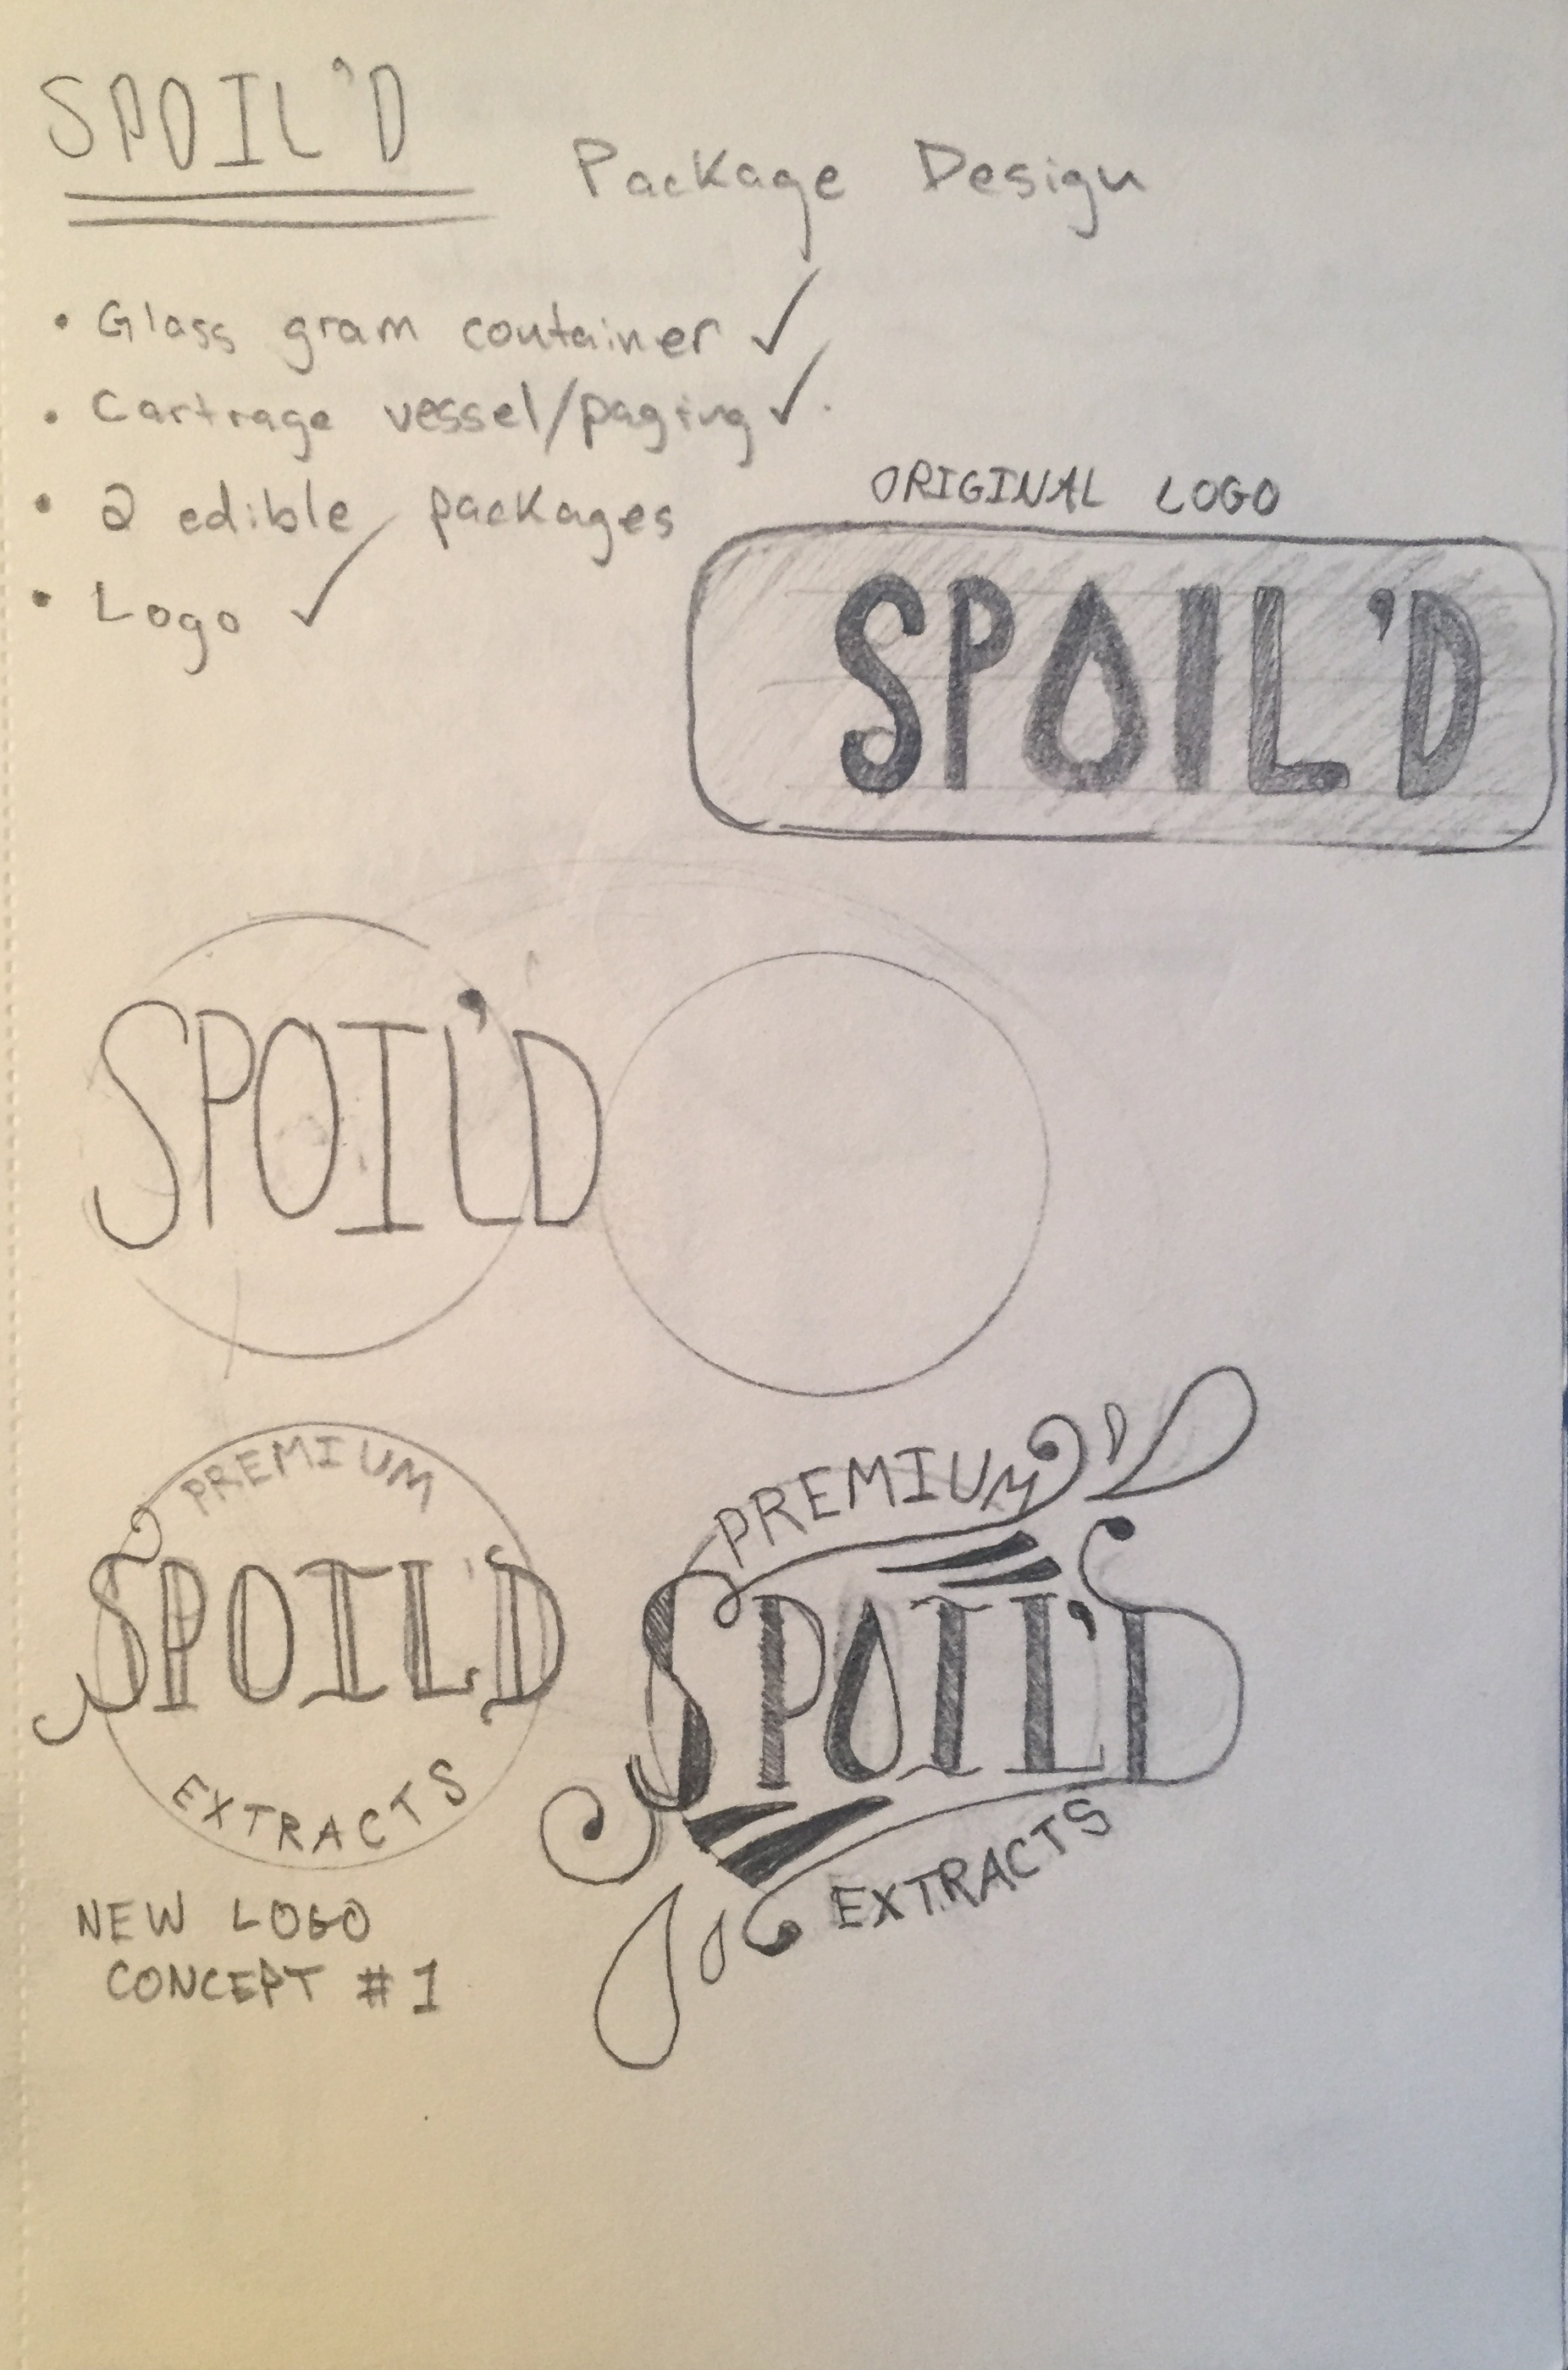 SPOIL'D
Package Design
• Glass gram container ✓
• Cartrage vessel/paging ✓
• 2 edible packages
• Logo ✓
ORIGINAL LOGO
SPOIL'D
SPOIL'D
PREMIUM
SPOIL'D
EXTRACTS
NEW LOGO
CONCEPT #1
PREMIUM
SPOIL'D
EXTRACTS